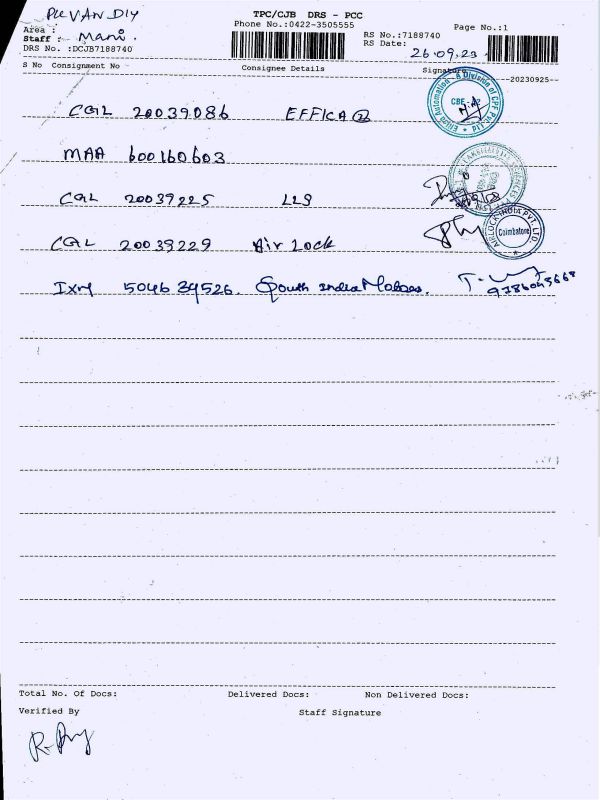 PCC VAN DIY
TPC/CJB DRS - PCC
Phone No.:0422-3505555
Page No.:1
Area :
Staff : Mani.
RS No.:7188740
RS Date: 26.09.23
DRS No. :DCJB7188740
S No Consignment No Consignee Details Signature
20230925
CGL 20039086 EFFICA
CBE
MAA 600160603
CGL 20039225 LLS
CGL 20039229 Air Lock
AIRLOCK INDIA PVT. LTD.
Coimbatore
Ixm 504634526. South India
Total No. Of Docs: Delivered Docs: Non Delivered Docs:
Verified By Staff Signature